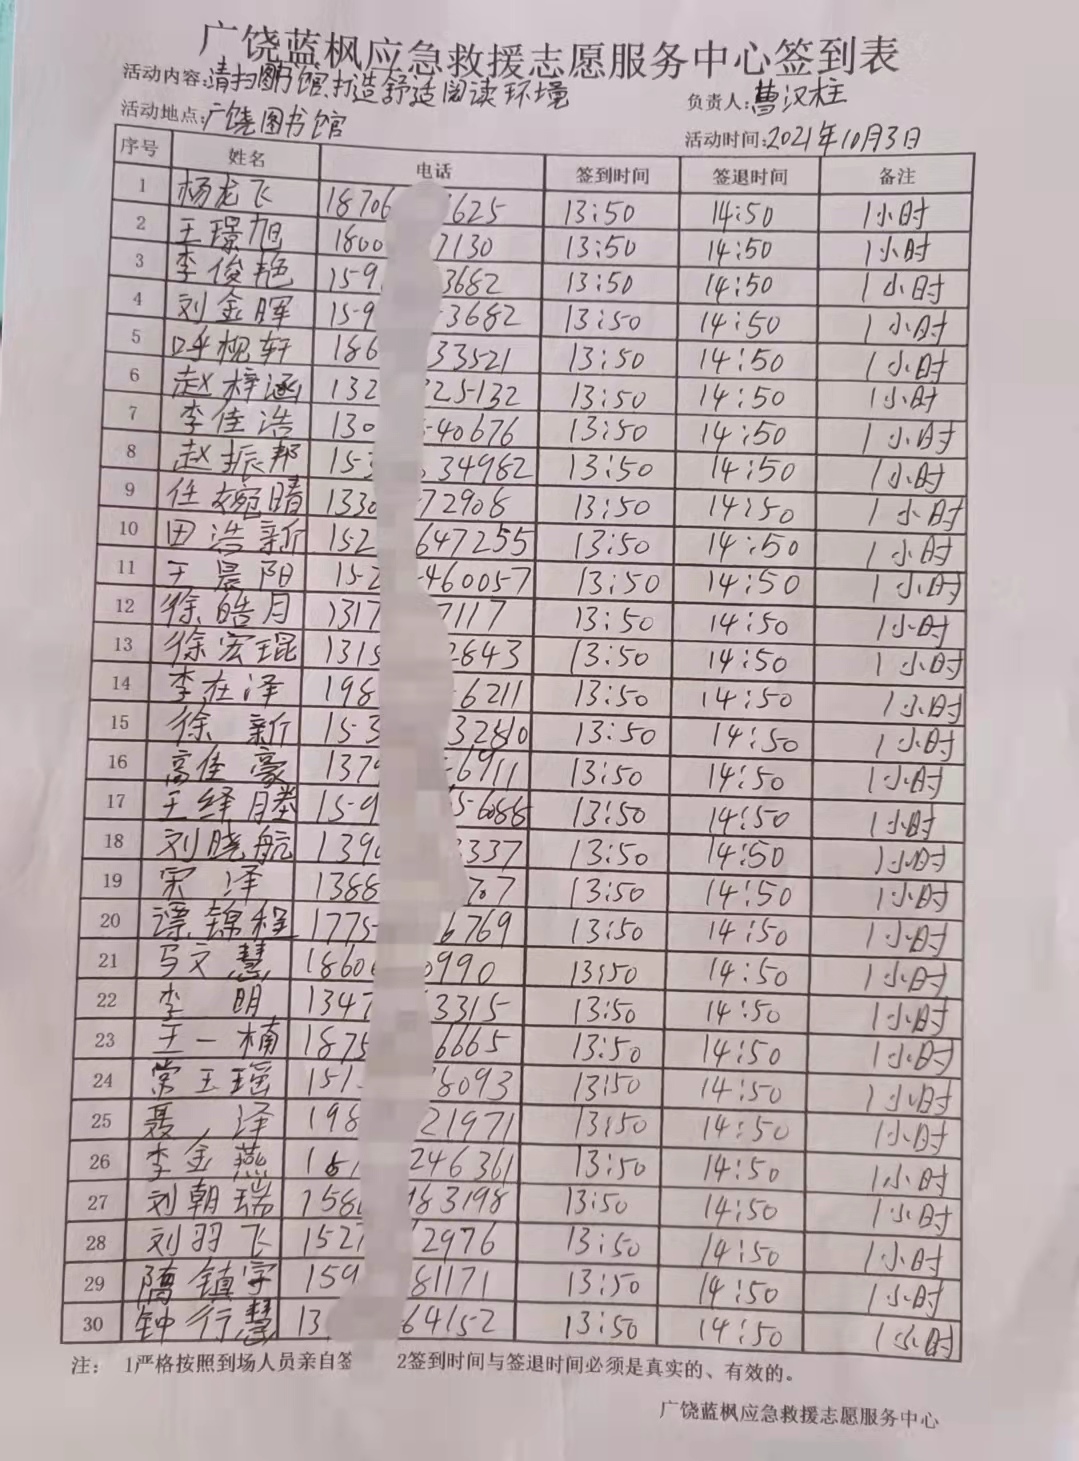 广饶蓝枫应急救援志愿服务中心签到表
活动内容:清扫图书馆、打造舒适阅读环境 负责人:曹汉柱
活动地点:广饶图书馆 活动时间:2021年10月3日
序号 姓名 电话 签到时间 签退时间 备注
1 杨龙飞 18706 625 13:50 14:50 1小时
2 王璟旭 1800 7130 13:50 14:50 1小时
3 李俊艳 159 3682 13:50 14:50 1小时
4 刘金晖 159 3682 13:50 14:50 1小时
5 呼枧轩 186 33521 13:50 14:50 1小时
6 赵梓涵 132 25132 13:50 14:50 1小时
7 李佳浩 130 40676 13:50 14:50 1小时
8 赵振邦 153 34982 13:50 14:50 1小时
9 任婉晴 1330 72908 13:50 14:50 1小时
10 田浩新 152 647255 13:50 14:50 1小时
11 王晨阳 152 460057 13:50 14:50 1小时
12 徐皓月 1317 7117 13:50 14:50 1小时
13 徐宏琨 1315 2843 13:50 14:50 1小时
14 李在泽 198 6211 13:50 14:50 1小时
15 徐新 153 32810 13:50 14:50 1小时
16 高佳豪 1379 6911 13:50 14:50 1小时
17 王绎 159 56088 13:50 14:50 1小时
18 刘晓航 1390 3337 13:50 14:50 1小时
19 宋泽 1388 707 13:50 14:50 1小时
20 谭锦程 1775 6769 13:50 14:50 1小时
21 马文慧 1860 0990 13:50 14:50 1小时
22 李明 1347 3315 13:50 14:50 1小时
23 王一楠 1875 6665 13:50 14:50 1小时
24 常玉瑶 151 8093 13:50 14:50 1小时
25 聂泽 198 21971 13:50 14:50 1小时
26 李金燕 1 246361 13:50 14:50 1小时
27 刘朝瑞 158 183198 13:50 14:50 1小时
28 刘羽飞 1527 2976 13:50 14:50 1小时
29 隋镇宇 159 81171 13:50 14:50 1小时
30 钟行慧 13 64152 13:50 14:50 1小时
注: 1严格按照到场人员亲自签 2签到时间与签退时间必须是真实的、有效的。
广饶蓝枫应急救援志愿服务中心